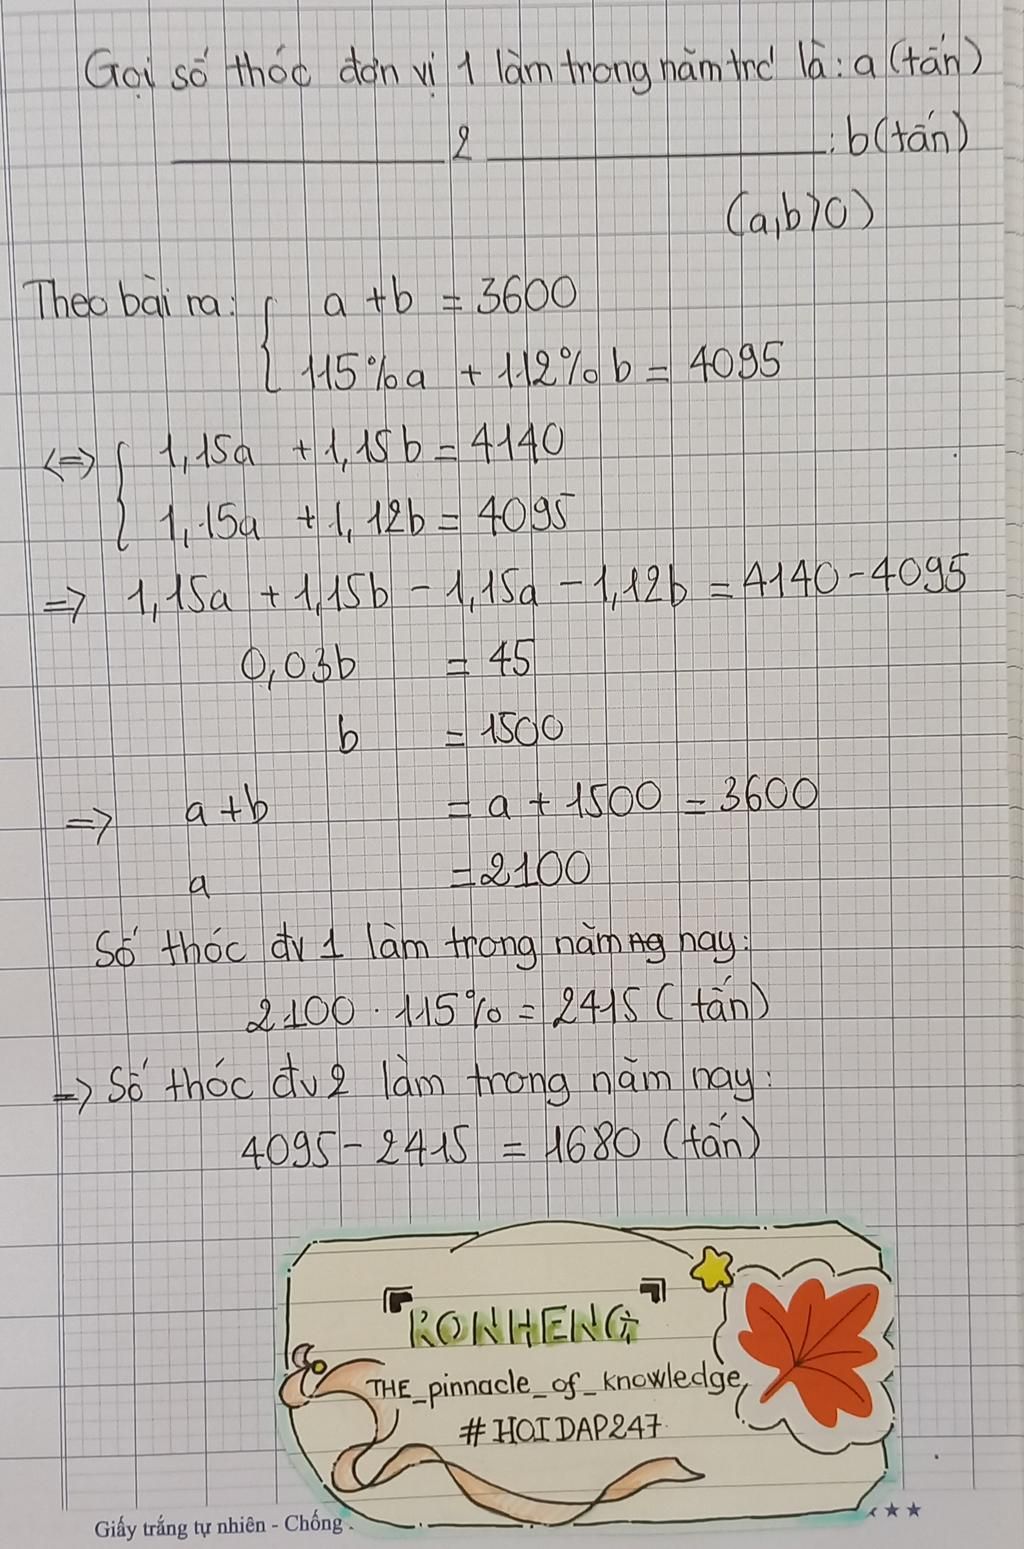 Gọi số thóc đơn vị 1 làm trong năm trc là: a (tấn)
2 : b (tấn)
(a,b>0)
Theo bài ra: { a + b = 3600
115% a + 112% b = 4095
<=> { 1,15a + 1,15b = 4140
1,15a + 1,12b = 4095
=> 1,15a + 1,15b - 1,15a - 1,12b = 4140 - 4095
0,03b = 45
b = 1500
=> a + b = a + 1500 = 3600
a = 2100
Số thóc đv 1 làm trong năm nay:
2100 . 115% = 2415 (tấn)
=> Số thóc đv 2 làm trong năm nay:
4095 - 2415 = 1680 (tấn)
「RONHENG」
THE_pinnacle_of_knowledge
#HOIDAP247
Giấy trắng tự nhiên - Chống